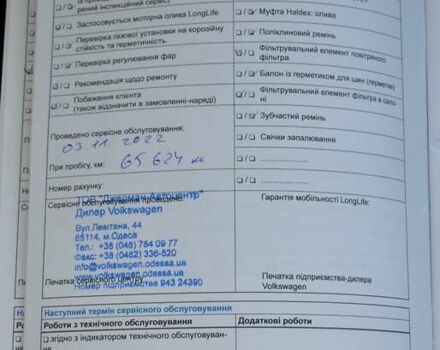 рений інспекційний сервіс)
Застосовується моторна олива LongLife
Перевірка газової установки на корозійну
стійкість та герметичність
Перевірка регулювання фар
Рекомендація щодо ремонту
Побажання клієнта
(також відзначити в замовленні-наряді)
Проведено сервісне обслуговування:
03.11.2022
При пробігу, км: 65 624 км
Номер рахунку:
Сервісне обслуговування проведено:
ТОВ "Джерман Автоцентр"
Дилер Volkswagen
Вул.Левітана, 44
65114, м.Одеса
Тел.: +38 (048) 784 09 77
Факс: +38 (0482) 336-520
info@volkswagen.odessa.ua
www.volkswagen.odessa.ua
Печатка сервісного центру
Номер підприємства 943 24390
Муфта Haldex: олива
Поліклиновий ремінь
Фільтрувальний елемент повітряного
фільтра
Балон із герметиком для шин (герметик)
Фільтрувальний елемент фільтра в сало-
ні
Зубчастий ремінь
Свічки запалювання
Гарантія мобільності LongLife:
Печатка підприємства-дилера
Volkswagen
Наступний термін сервісного обслуговування
Роботи з технічного обслуговування
Додаткові роботи
згідно з індикатором технічного обслуговуван-
ня